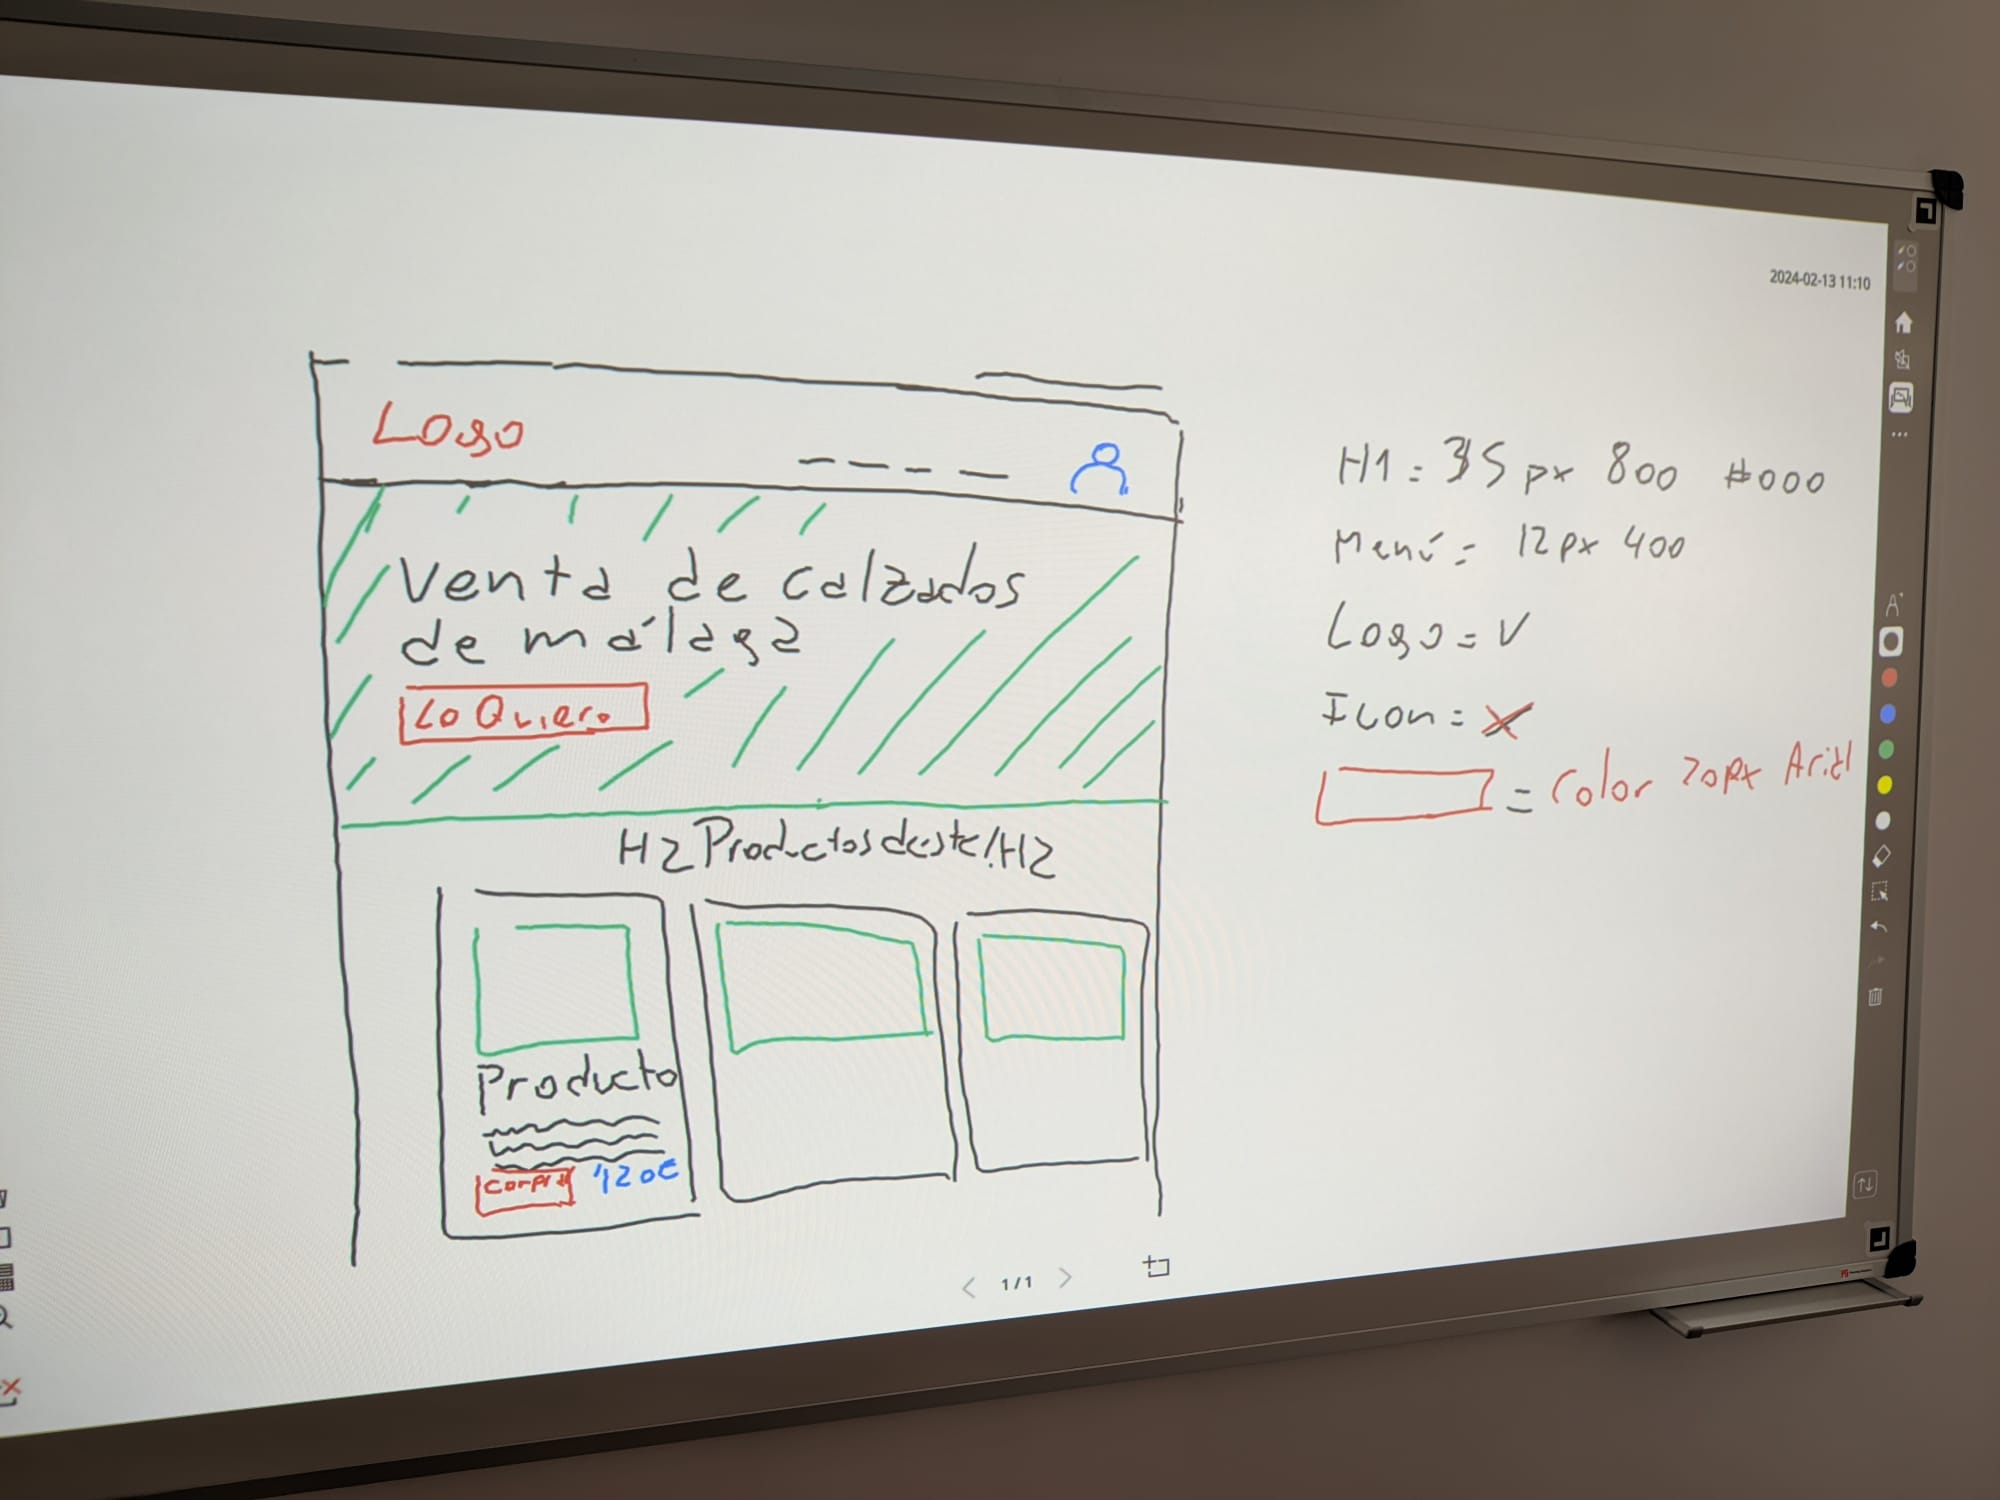 2024-02-13 11:10
Logo
Venta de calzados
de málaga
Lo Quiero
H2 Productos deste! H2
Producto
120€
H1 = 35 px 800 #000
Menú = 12px 400
Logo = V
Icon = X
= Color 20px Arial
1/1